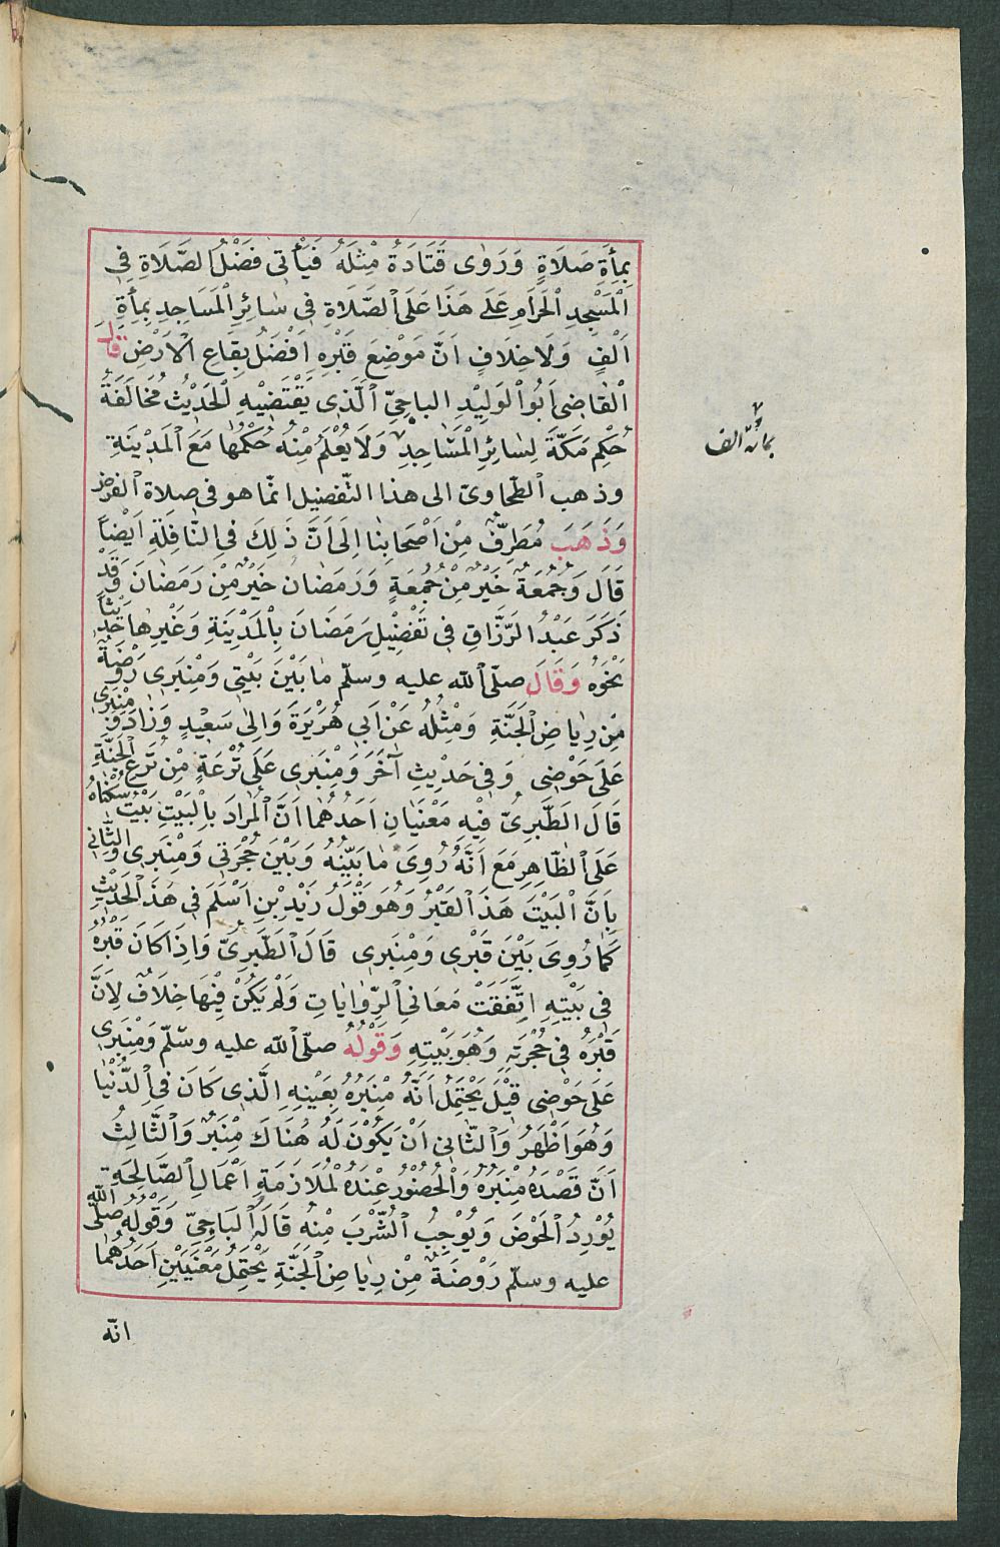 بِمِأَةِ صَلَاةٍ وَرَوٰى قَتَادَةُ مِثْلَهُ فَيَأْتى فَضْلُ الصَّلَاةِ فِى
الْمَسْجِدِ الْحَرَامِ عَلٰى هَذَا عَلَى الصَّلَاةِ فِى سَائِرِ الْمَسَاجِدِ بِمِأَةِ
اَلْفٍ وَلَا خِلَافٍ اَنَّ مَوْضِعَ قَبْرِهِ اَفْضَلُ بِقَاعِ الْاَرْضِ قال
الْقَاضِى اَبُو الْوَلِيْدِ الباجِىّ اَلَّذى يَقْتَضِيْهِ الْحَدِيْثُ مُخَالَفَةُ
حُكْمِ مَكَّةَ لِسَائِرِ الْمَسَاجِدِ وَلَا يُعْلَمُ مِنْهُ حُكْمُهَا مَعَ الْمَدِيْنَةِ
بمائة الف
وذهب الطّحاوىّ الى هذا التّفضيل انّما هو فى صلاة الفرض
وَذَهَبَ مُطَرِّفٌ مِنْ اَصْحَابِنَا اِلَى اَنَّ ذَلِكَ فى النَّافِلَةِ اَيْضاً
قَالَ وَجُمُعَةٌ خَيْرٌ مِنْ جُمُعَةٍ وَرَمَضَان خَيْرٌ مِّنْ رَمَضَانَ وَقَدْ
ذَكَرَ عَبْدُ الرَّزَّاقِ فى تَفْضِيْلِ رَمَضَانَ بِالْمَدِيْنَةِ وَغَيْرِهَا حَدِيْثاً
نَحْوَهُ وَقَالَ صلّى الله عليه وسلّم مٰا بَيْنَ بَيْتِى وَمِنْبَرِى رَوْضَةٌ
مِّنْ رِيَاضِ الْجَنَّةِ وَمِثْلُهُ عَنْ اَبى هُرَيْرَةَ وَابِى سَعِيْدٍ وَزَادَ وَمِنْبَرِى
عَلَى حَوْضِى وَفى حَدِيْثٍ آخَرَ وَمِنْبَرِى عَلَى تُرْعَةٍ مِّنْ تُرَعِ الْجَنَّةِ
قَالَ الطَّبَرِىُّ فِيْهِ مَعْنَيَانِ اَحَدُهُمَا اَنَّ الْمُرَادَ بِالْبَيْتِ بَيْتُ سُكْنَاهُ
عَلَى الظَّاهِرِ مَعَ اَنَّهُ رُوِىَ مَا يُبَيِّنُهُ وَبَيْنَ حُجْرَتى وَمِنْبَرِى والثّانى
بِاَنَّ الْبَيْتَ هَذَا الْقَبْرُ وَهُوَ قَوْلُ زَيْدِ بْنِ اَسْلَمَ فى هَذَا الْحَدِيْثِ
كَمَا رُوِىَ بَيْنَ قَبْرِى وَمِنْبَرِى قَالَ الطَّبَرِىُّ وَاِذَا كَانَ قَبْرُهُ
فى بَيْتِهِ اِتَّفَقَتْ مَعَانى الرِّوَايَاتِ وَلَمْ يَكُنْ فِيْهَا خِلَافٌ لِاَنَّ
قَبْرَهُ فى حُجْرَتِهِ وَهُوَ بَيْتِهِ وَقَوْلُهُ صلّى الله عليه وسلّم وَمِنْبَرِى
عَلَى حَوْضِى قِيْلَ يَحْتَمِلُ اَنَّهُ مِنْبَرُهُ بِعَيْنِهِ الَّذِى كَانَ فى الدُّنْيَا
وَهُوَ اَظْهَرُ وَالثّانى اَنْ يَكُوْنَ لَهُ هُنَاكَ مِنْبَرٌ وَالثّالِثُ
اَنَّ قَصْدَهُ مِنْبَرُهُ وَالْحُضُوْرُ عِنْدَهُ لِمُلَازَمَةِ اَعْمَالِ الصَّالِحَةِ
يُوْرِدُ الْحَوْضَ وَيُوْجِبُ الشُّرْبَ مِنْهُ قَالَهُ الْبَاجِىّ وَقَوْلُهُ صلّى الله
عليه وسلّم رَوْضَةٌ مِنْ رِيَاضِ الْجَنَّةِ يَحْتَمِلُ مَعْنَيَيْنِ اَحَدُهُمَا
انّه